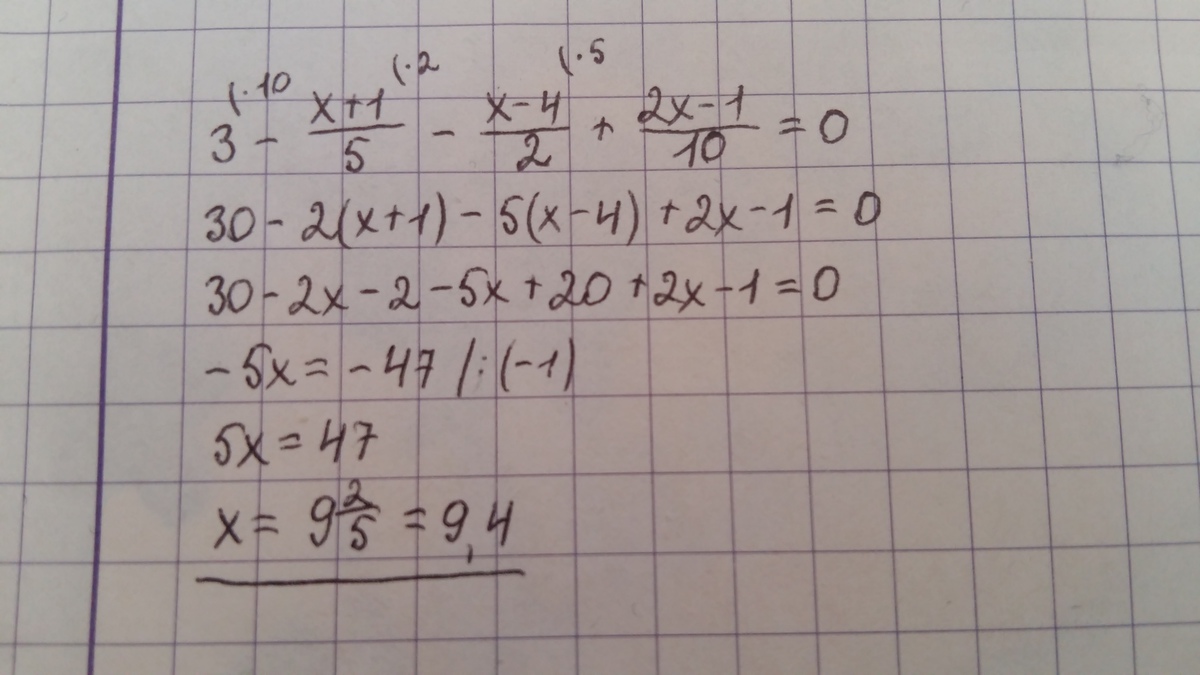 (·10 (·2 (·5
3 - (x+1)/5 - (x-4)/2 + (2x-1)/10 = 0
30 - 2(x+1) - 5(x-4) + 2x - 1 = 0
30 - 2x - 2 - 5x + 20 + 2x - 1 = 0
-5x = -47 /:(-1)
5x = 47
x = 9 2/5 = 9,4